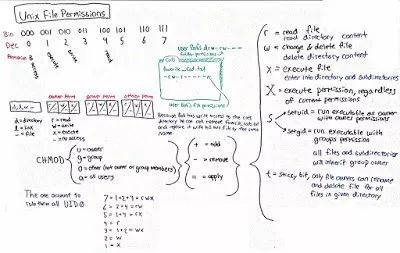 Unix File Permissions
Bin 000 001 010 011 100 101 110 111
Dec 0 1 2 3 4 5 6 7
execute
write
read
User Bob's drw-rw----
folder permissions
Bob
favorite_cod.txt
-rw-r-----
User Rob's file permissions
owner perm group perm other perm
d, l, -
r w x r w x r w x
d = directory
l = link
- = file
r = read
w = write
x = execute
- = no access
Because Bob has write access to the
directory he can
and replace it with his own file by the same
name
CHMOD
u = owner
g = group
o = other (not owner or group members)
a = all users
+ = add
- = remove
= = apply
The one account to
rule them all UID0
7 = 1+2+4 = rwx
6 = 2+4 = rw
5 = 1+4 = rx
4 = r
3 = 1+2 = wx
2 = w
1 = x
r = read file
read directory content
w = change & delete file
delete directory content
x = execute file
enter into directory and subdirectories
X = execute permission, regardless
of current permissions
s
setuid = run executable as owner with
owner permissions
setgid = run executable with
groups permission
all files and subdirectories
will inherit group owner
t = sticky bit, only file owners can rename
and delete file for all
files in given directory